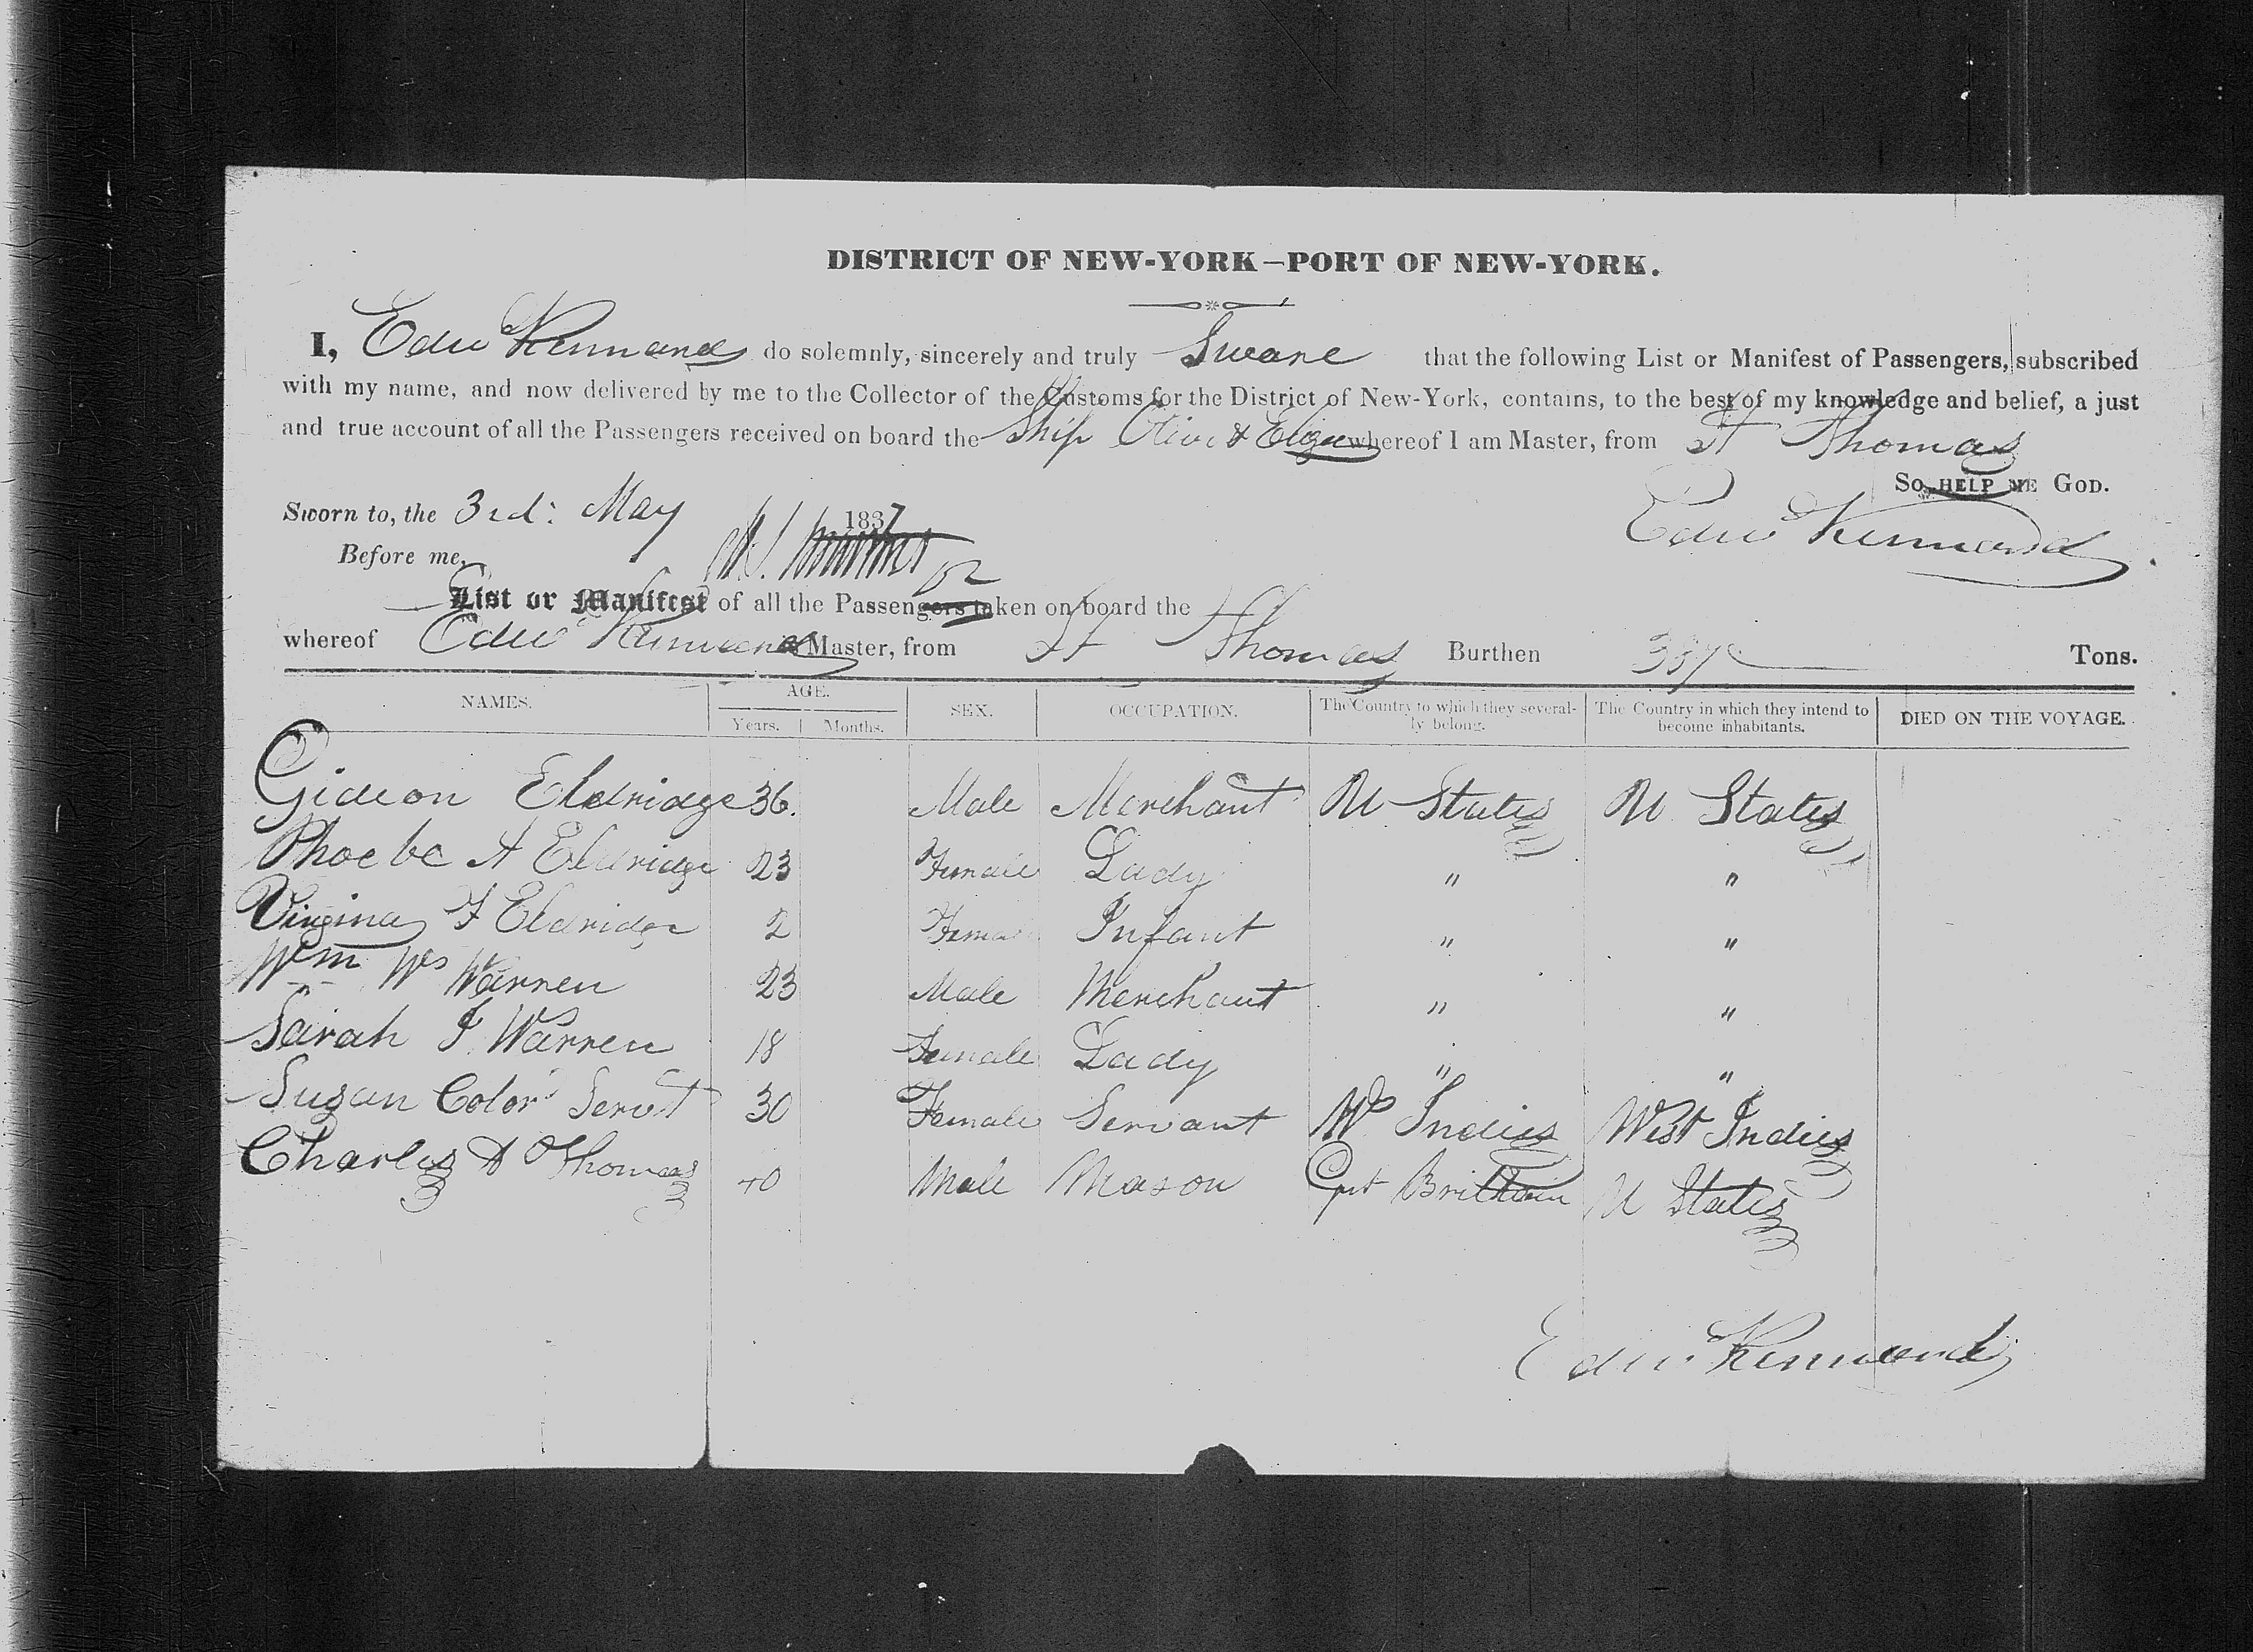 DISTRICT OF NEW-YORK—PORT OF NEW-YORK.
I, Edw Kennard do solemnly, sincerely and truly Sweare that the following List or Manifest of Passengers, subscribed
with my name, and now delivered by me to the Collector of the Customs for the District of New-York, contains, to the best of my knowledge and belief, a just
and true account of all the Passengers received on board the Ship Olive & Eliza whereof I am Master, from St Thomas
So HELP ME GOD.
Sworn to, the 3rd: May 1837
Edw Kennard
Before me,
List or Manifest of all the Passengers taken on board the
whereof Edw Kennard Master, from St Thomas Burthen Tons.
NAMES. AGE. SEX. OCCUPATION. The Country to which they several- The Country in which they intend to DIED ON THE VOYAGE.
Years. Months. ly belong. become inhabitants.
Gideon Eldridge 36. Male Merchant U States U States
Phoebe A Eldridge 23 Female Lady " "
Virgina F Eldridge 2 Fema Infant " "
Wm Ws Warren 23 Male Merchant " "
Sarah J Warren 18 Female Lady " "
Susan Colord Servt 30 Female Servant Ws Indies West Indies
Charles A Thomas 40 Male Mason Grt Brittain U States
Edw Kennard